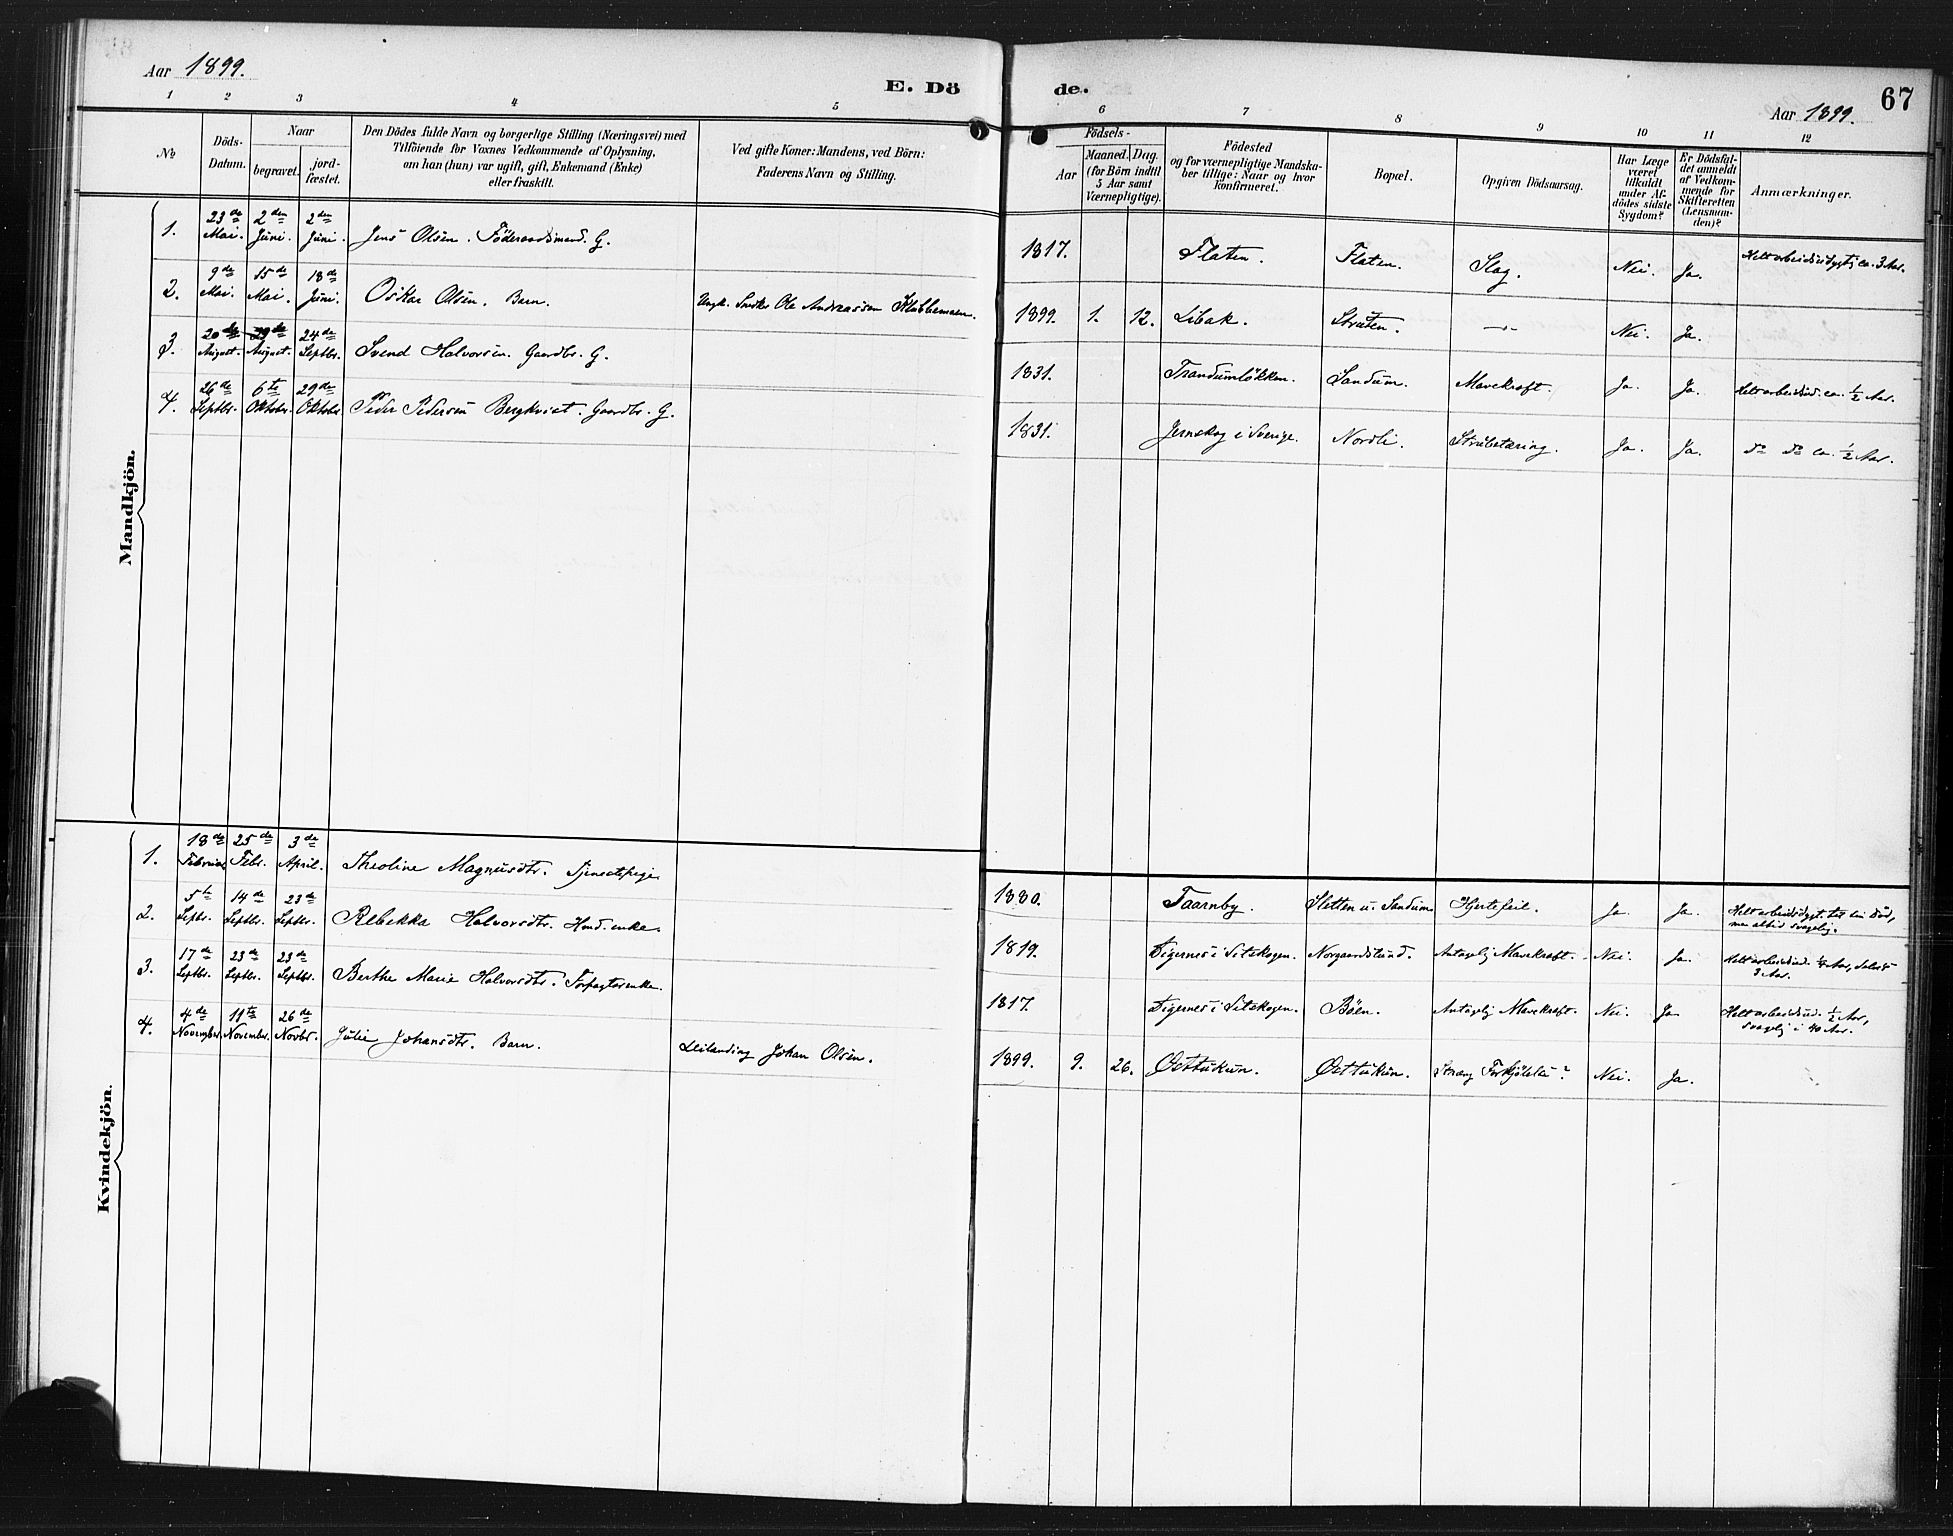 Aar 1899.
E. Dö
de.
Aar 1899.
67
1 2 3 4 5 6 7 8 9 10 11 12
No
Döds-
Datum.
Naar
begravet.
jord-
fæstet.
Den Dödes fulde Navn og borgerlige Stilling (Næringsvei) med
Tilföiende for Voxnes Vedkommende af Oplysning,
om han (hun) var ugift, gift, Enkemand (Enke)
eller fraskilt.
Ved gifte Koner: Mandens, ved Börn:
Faderens Navn og Stilling.
Födsels-
Aar
Maaned. Dag.
(for Börn indtil
5 Aar samt
Værnepligtige).
Födested
og for værnepligtige Mandska-
ber tillige: Naar og hvor
konfirmeret.
Bopæl.
Opgiven Dödsaarsag.
Har Læge
været
tilkaldt
under Af-
dödes sidste
Sygdom?
Er Dödsfal-
det anmeldt
af Vedkom-
mende for
Skifteretten
(Lensman-
den)?
Anmærkninger.
Mandkjön.
1. 23de Mai. 2den Juni. 2den Juni. Jens Olsen. Föderaadsmand. G. 1817. Flaten. Flaten. Slag. Nei. Ja. Helt arbeidsudygtig ca. 3 Aar.
2. 9de Mai. 15de Mai. 18de Juni. Oskar Olsen. Barn. Ungk. Snedker Ole Andreassen Klubbemoen. 1899. 1. 12. Libak. Struten. -"- Nei. Ja.
3. 20de August. August. 24de Septbr. Svend Halvorsen. Gaardbr. G. 1831. Trandumlökken. Sandum. Mavekræft. Ja. Ja. Helt arbeidsud. ca. 1/2 Aar.
4. 26de Septbr. 6te Oktober. 29de Oktober. Peder Pedersen Bergkvist. Gaardbr. G. 1831. Jernskog i Sverige. Nordli. Strubetæring. Ja. Ja. do do ca. 1/2 Aar.
Kvindekjön.
1. 18de Februar. 25de Febr. 3de April. Theoline Magnusdtr. Tjenestepige. 1880. Taarnby. Sletten u. Sandum Hjertefeil. Ja. Ja. Helt arbeidsdygt. til sin Död, men altid svagelig.
2. 5te Septbr. 14de Septbr. 23de Septbr. Rebekka Halvorsdtr. Husmd. enke. 1819. Digernes i Setskogen. Norgaardslund. Antagelig Mavekræft. Nei. Ja. Helt arbeidsud. 1/4 Aar, 3 Aar.
3. 17de Septbr. 23de Septbr. 23de Septbr. Berthe Marie Halvorsdtr. Forpagterenke. 1817. Digernes i Setskogen. Böen. Antagelig Mavekræft. Nei. Ja Helt arbeidsud. 1/2 Aar, svagelig i 40 Aar.
4. 4de November. 11te November. 26de Novbr. Julie Johansdtr. Barn. Leilending Johan Olsen. 1899. 9. 26. Östtukun. Östtukun. Stræng Forkjölelse? Nei. Ja.